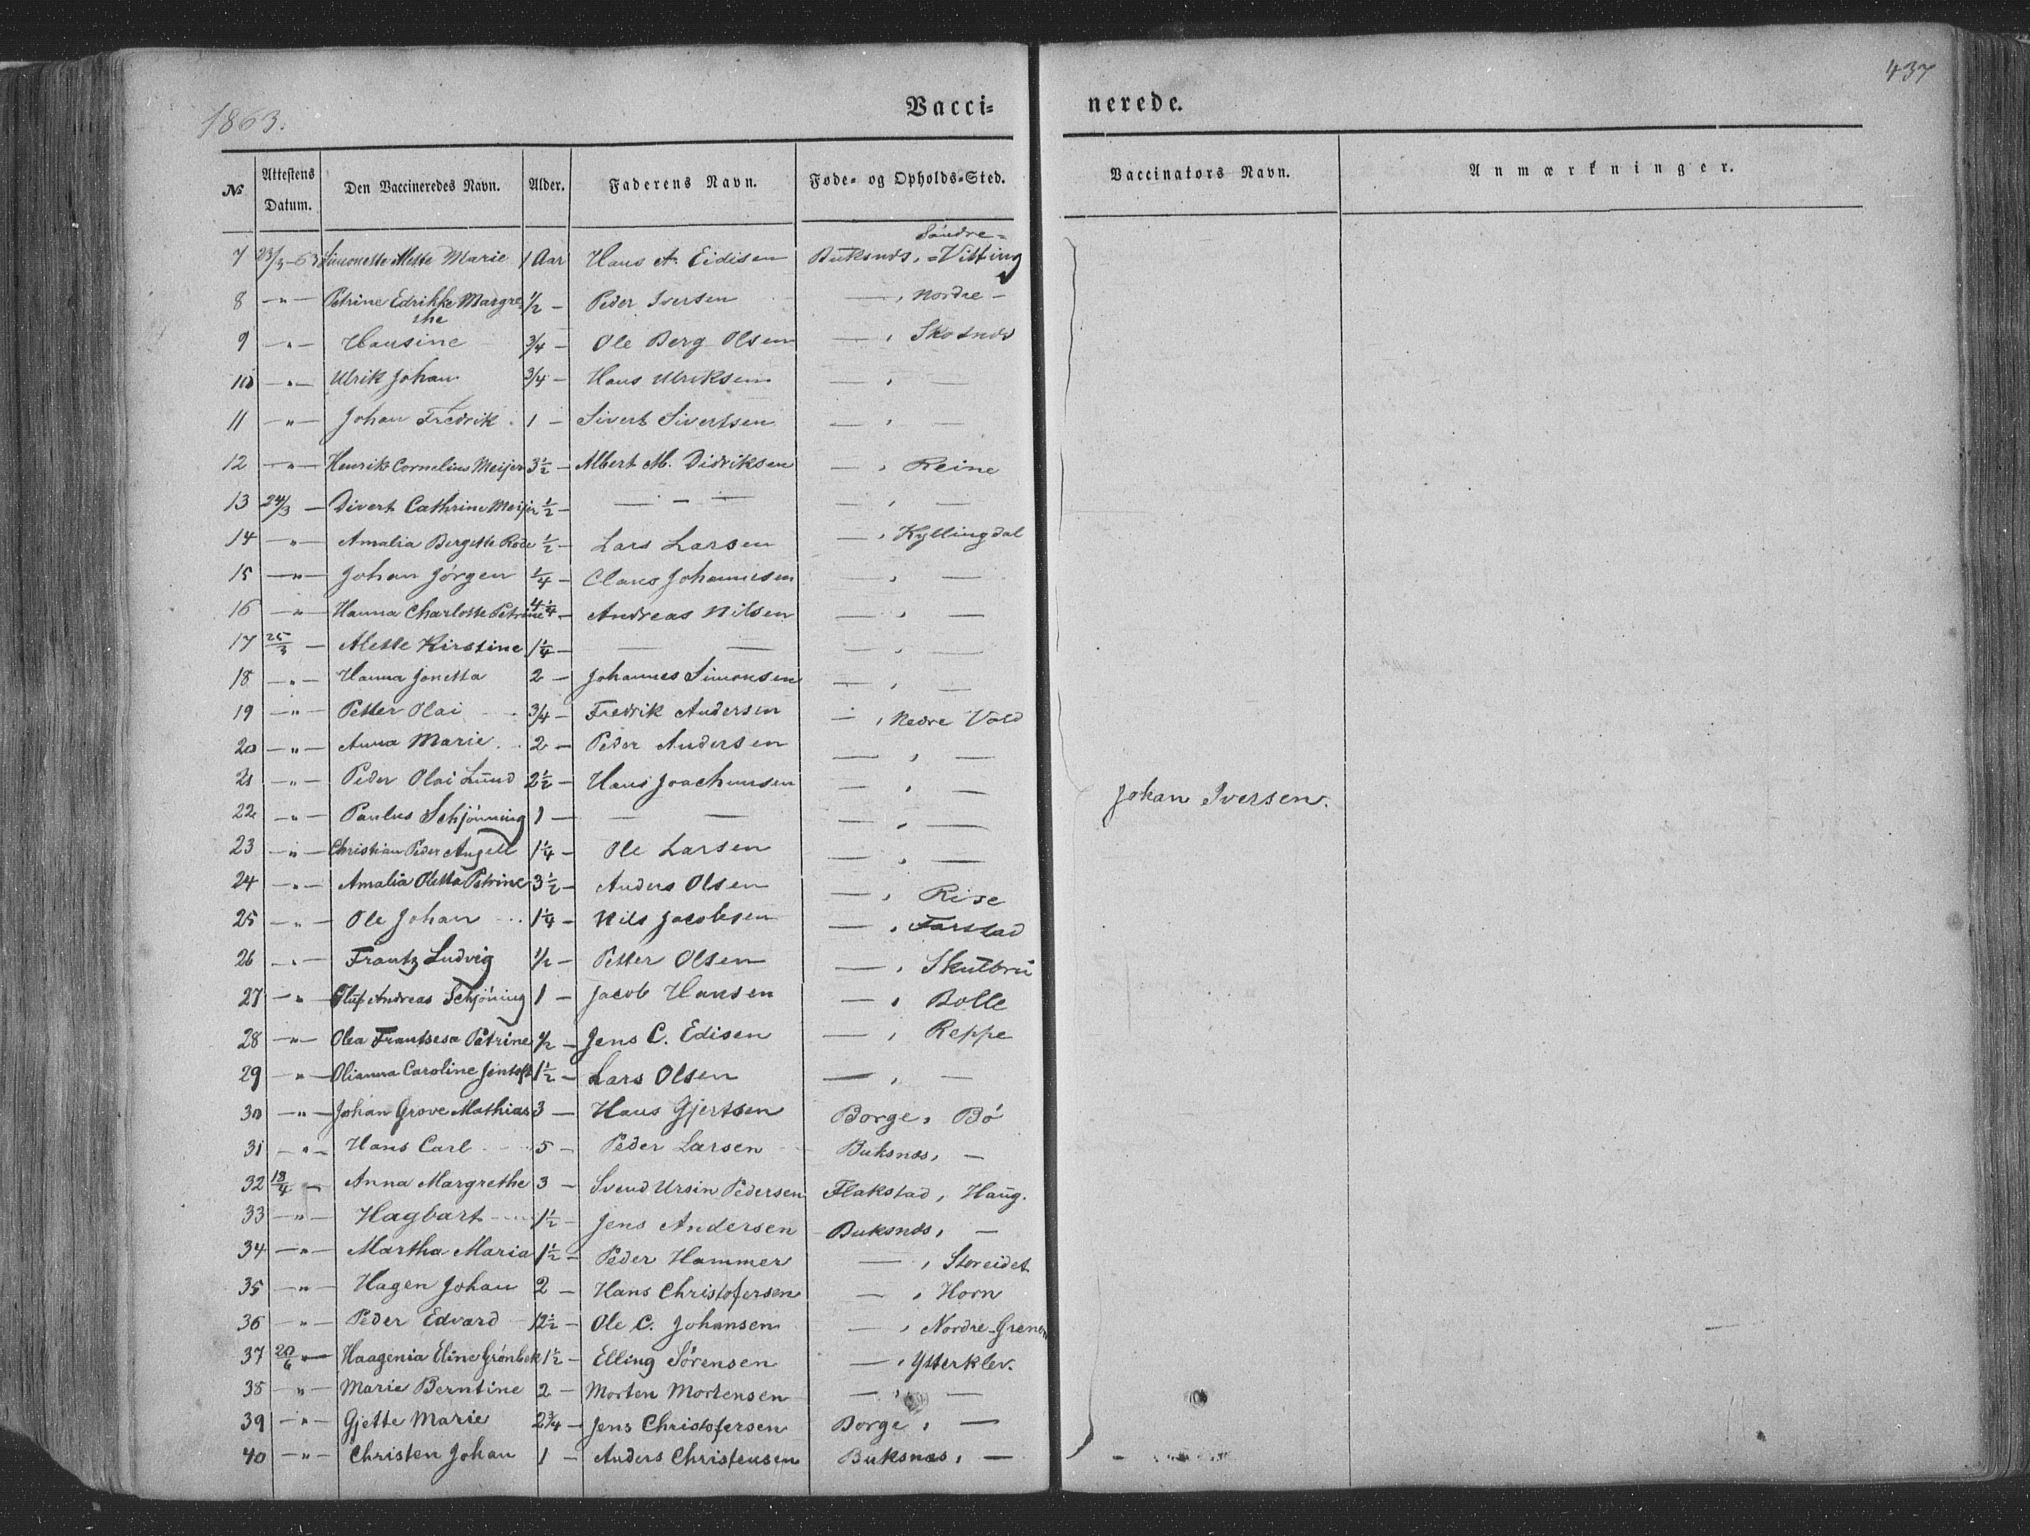 437
1863.
Vacci= nerede.
No. | Attestens Datum. | Den Vaccineredes Navn. | Alder. | Faderens Navn. | Føde- og Opholds-Sted. | Vaccinators Navn. | Anmærkninger.
Søndre-
7 23/3-63 Simonette Mette Marie 1 Aar Hans A. Eidisen Buksnæs, - Vitting
8 -"- Petrine Edrikke Margre 1/2 - Peder Iversen — , Nordre -
the
9 -"- Hansine 3/4 - Ole Berg Olsen — , Skotnæs
10 -"- Ulrik Johan 3/4 - Hans Ulriksen — , —
11 -"- Johan Fredrik . 1 - Sivert Sivertsen — , —
12 -"- Henrik Cornelius Meijer 3 1/2 - Albert M. Didriksen — , Reine
13 24/3 - Divert Cathrine Meijer 1/2 - — - — — , —
14 -"- Amalia Bergette Rode 1/2 - Lars Larsen — , Kyllingdal
15 -"- Johan Jørgen 1/4 - Claus Johannesen — , —
16 -"- Hanna Charlotte Petrine 4 1/4 - Andreas Nilsen — , —
17 25/3 - Mette Kirstine 1 1/4 - — — — , —
18 -"- Hanna Jonetta 2 - Johannes Simonsen — , —
19 -"- Petter Olai 3/4 - Fredrik Andersen — , Nedre Vold
20 -"- Anna Marie . . 2 - Peder Andersen — , —
21 -"- Peder Olai Lund 2 1/2 - Hans Joachimsen — , —
22 -"- Paulus Schjønning 1 - — — — , —
Johan Iversen.
23 -"- Christian Peder Angell 1 1/4 - Ole Larsen — , —
24 -"- Amalia Oletta Petrine 3 1/2 - Anders Olsen — , Rise
25 -"- Ole Johan 1 1/4 - Nils Jacobsen — , Farstad
26 " Frantz Ludvig 1/2 - Petter Olsen — , Skulbru
27 -"- Oluf Andreas Schjøning 1 - Jacob Hansen — , Bolle
28 -"- Olea Frantsesa Petrine 1/2 - Jens C. Edisen — , Reppe
29 -"- Olianna Caroline Jentoft 1 1/2 - Lars Olsen — , —
30 -"- Johan Grove Mathias 3 - Hans Gjertsen Borge, Bø
31 -"- Hans Carl 5 - Peder Larsen Buksnæs, -
32 18/4 - Anna Margrethe 3 - Svend Ursin Pedersen Flakstad, Haug.
33 -"- Hagbart 1 1/2 - Jens Andersen Buksnæs, -
34 -"- Martha Maria 1 1/2 - Peder Hammer — , Storeidet
35 -"- Hagen Johan 2 - Hans Christofersen — , Horn
36 -"- Peder Edvard 12 1/2 - Ole C. Johansen — , Nordre-Grene
37 20/6 - Haagenia Eline Grønbek 1 1/2 - Elling Sørensen — , Ytterklev.
38 -"- Marie Berntine 2 - Morten Mortensen — , —
39 -"- Gjette Marie 2 3/4 - Jens Christofersen Borge, —
40 -"- Christen Johan 1 - Anders Christensen Buksnæs, —